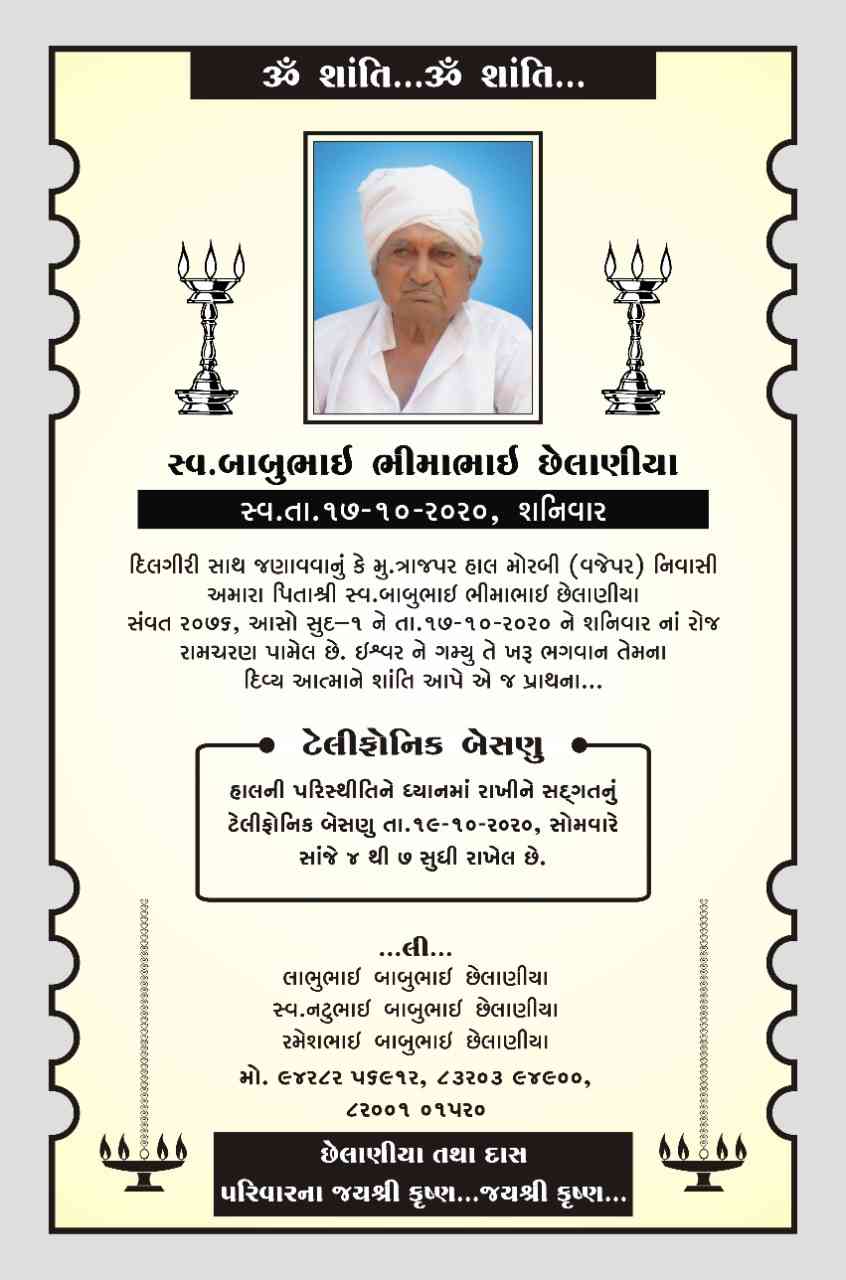 ૐ શાંતિ...ૐ શાંતિ...
સ્વ.બાબુભાઈ ભીમાભાઈ છેલાણીયા
સ્વ.તા.૧૭-૧૦-૨૦૨૦, શનિવાર
દિલગીરી સાથ જણાવવાનું કે મુ.ત્રાજપર હાલ મોરબી (વજેપર) નિવાસી
અમારા પિતાશ્રી સ્વ.બાબુભાઈ ભીમાભાઈ છેલાણીયા
સંવત ૨૦૭૬, આસો સુદ–૧ ને તા.૧૭-૧૦-૨૦૨૦ ને શનિવાર નાં રોજ
રામચરણ પામેલ છે. ઈશ્વર ને ગમ્યુ તે ખરૂ ભગવાન તેમના
દિવ્ય આત્માને શાંતિ આપે એ જ પ્રાથના...
ટેલીફોનિક બેસણુ
હાલની પરિસ્થીતિને ધ્યાનમાં રાખીને સદ્ગતનું
ટેલીફોનિક બેસણુ તા.૧૯-૧૦-૨૦૨૦, સોમવારે
સાંજે ૪ થી ૭ સુધી રાખેલ છે.
...લી...
લાભુભાઈ બાબુભાઈ છેલાણીયા
સ્વ.નટુભાઈ બાબુભાઈ છેલાણીયા
રમેશભાઈ બાબુભાઈ છેલાણીયા
મો. ૯૪૨૮૨ ૫૬૯૧૨, ૮૩૨૦૩ ૯૪૯૦૦,
૮૨૦૦૧ ૦૧૫૨૦
છેલાણીયા તથા દાસ
પરિવારના જયશ્રી કૃષ્ણ...જયશ્રી કૃષ્ણ...